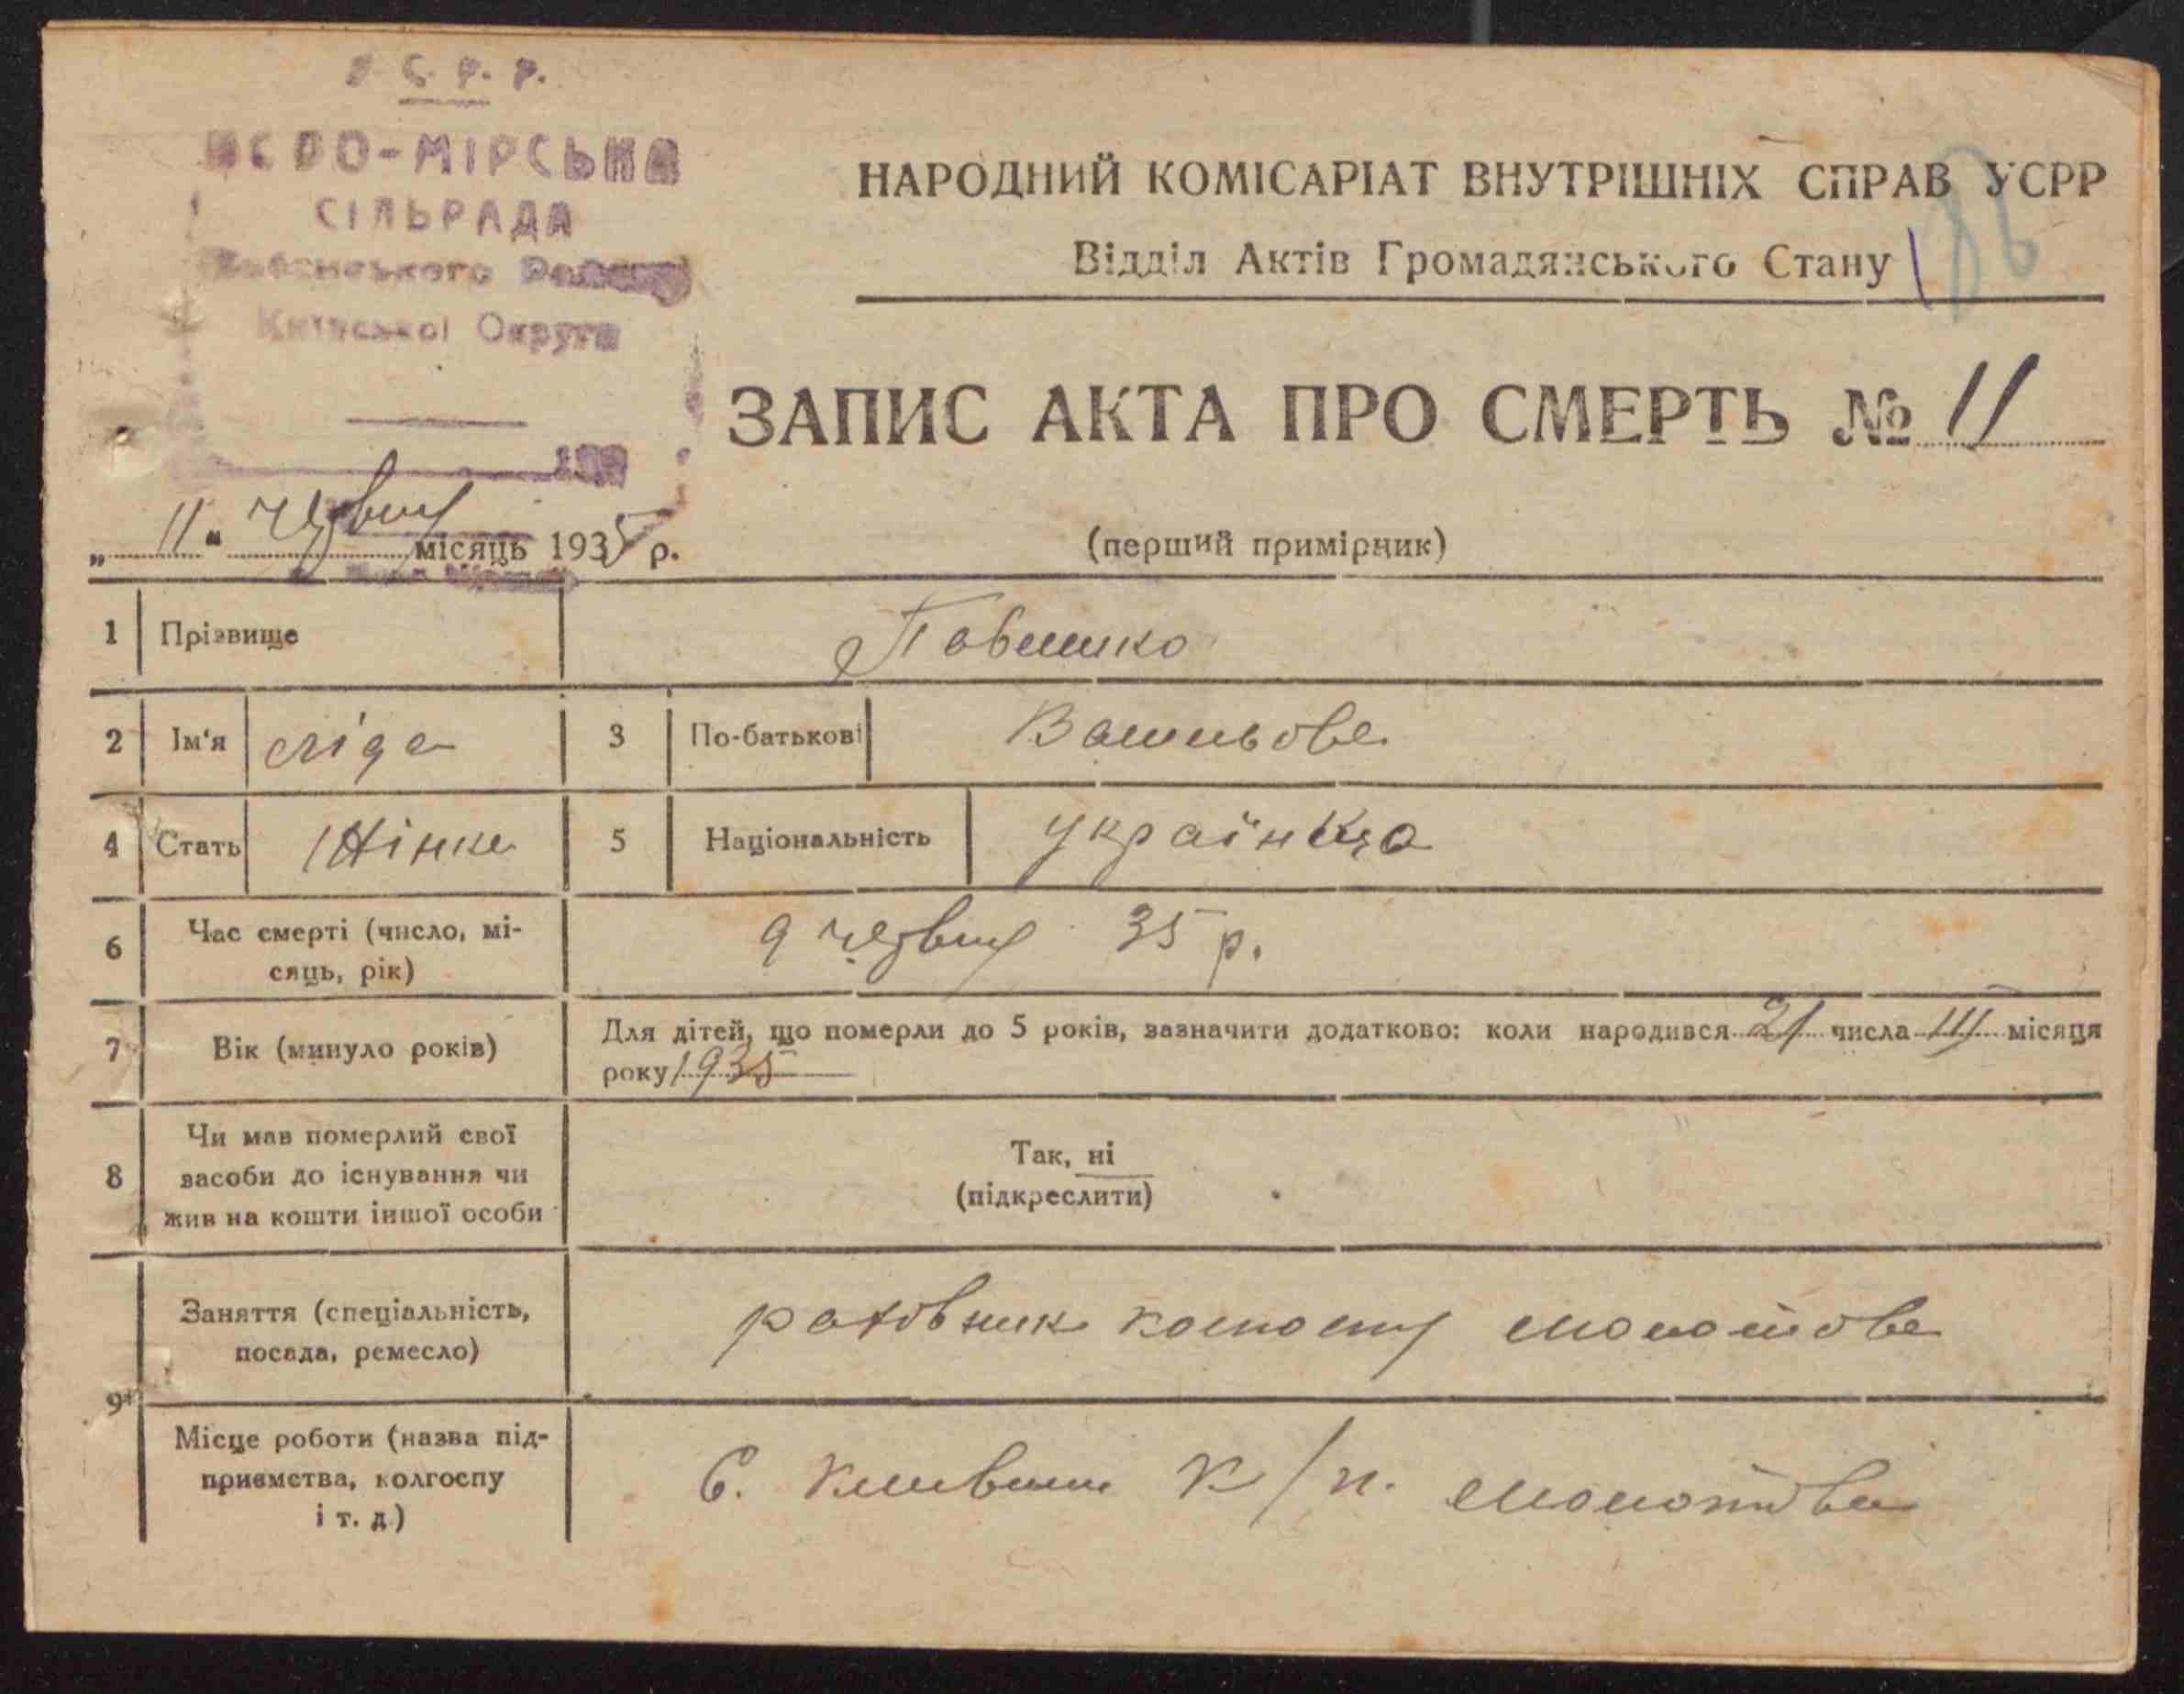 С. Р. Р.
-МІРСЬКА
СІЛЬРАДА
Київської Округи
НАРОДНИЙ КОМІСАРІАТ ВНУТРІШНІХ СПРАВ УСРР
Відділ Актів Громадянського Стану
86
ЗАПИС АКТА ПРО СМЕРТЬ № 11
„ 11 “ червня місяць 1935 р.
(перший примірник)
1 Прізвище
2 Ім'я Ліда 3 По-батькові Васильовс
4 Стать Жінка 5 Національність Українка
6 Час смерті (число, мі-
сяць, рік) 9 червня 35 р.
7 Вік (минуло років) Для дітей, що померли до 5 років, зазначити додатково: коли народився 21 числа III місяця
року 1935
8 Чи мав померлий свої
засоби до існування чи
жив на кошти іншої особи
Так, ні
(підкреслити)
9 Заняття (спеціальність,
посада, ремесло) рахівник колгоспу Молотова
Місце роботи (назва під-
приємства, колгоспу
і т. д.) С. Молотова